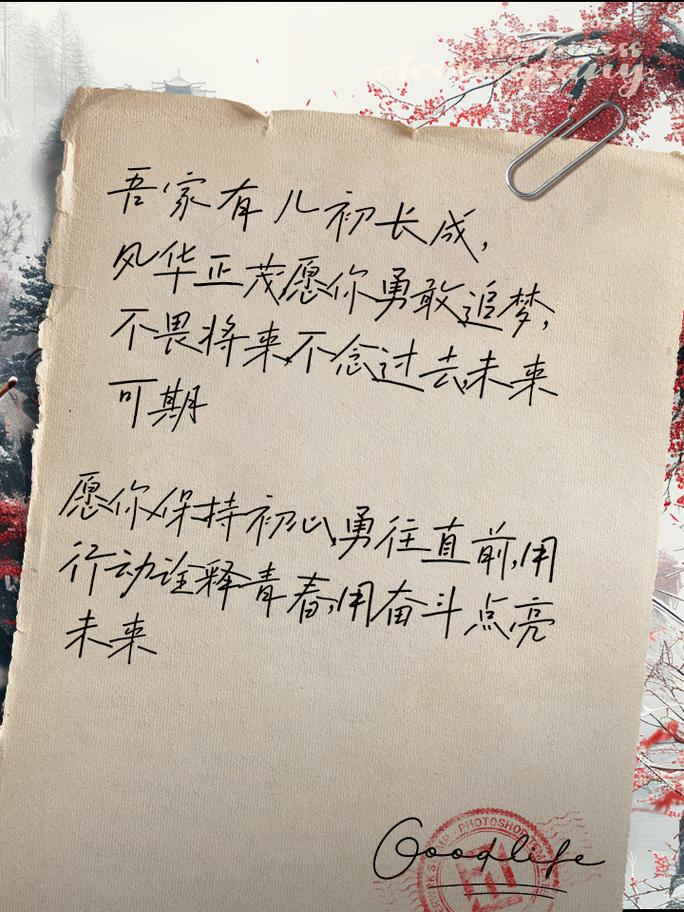 吾家有儿初长成，
风华正茂,愿你勇敢追梦，
不畏将来,不念过去,未来
可期
愿你保持初心,勇往直前,用
行动诠释青春,用奋斗点亮
未来
Goodlife